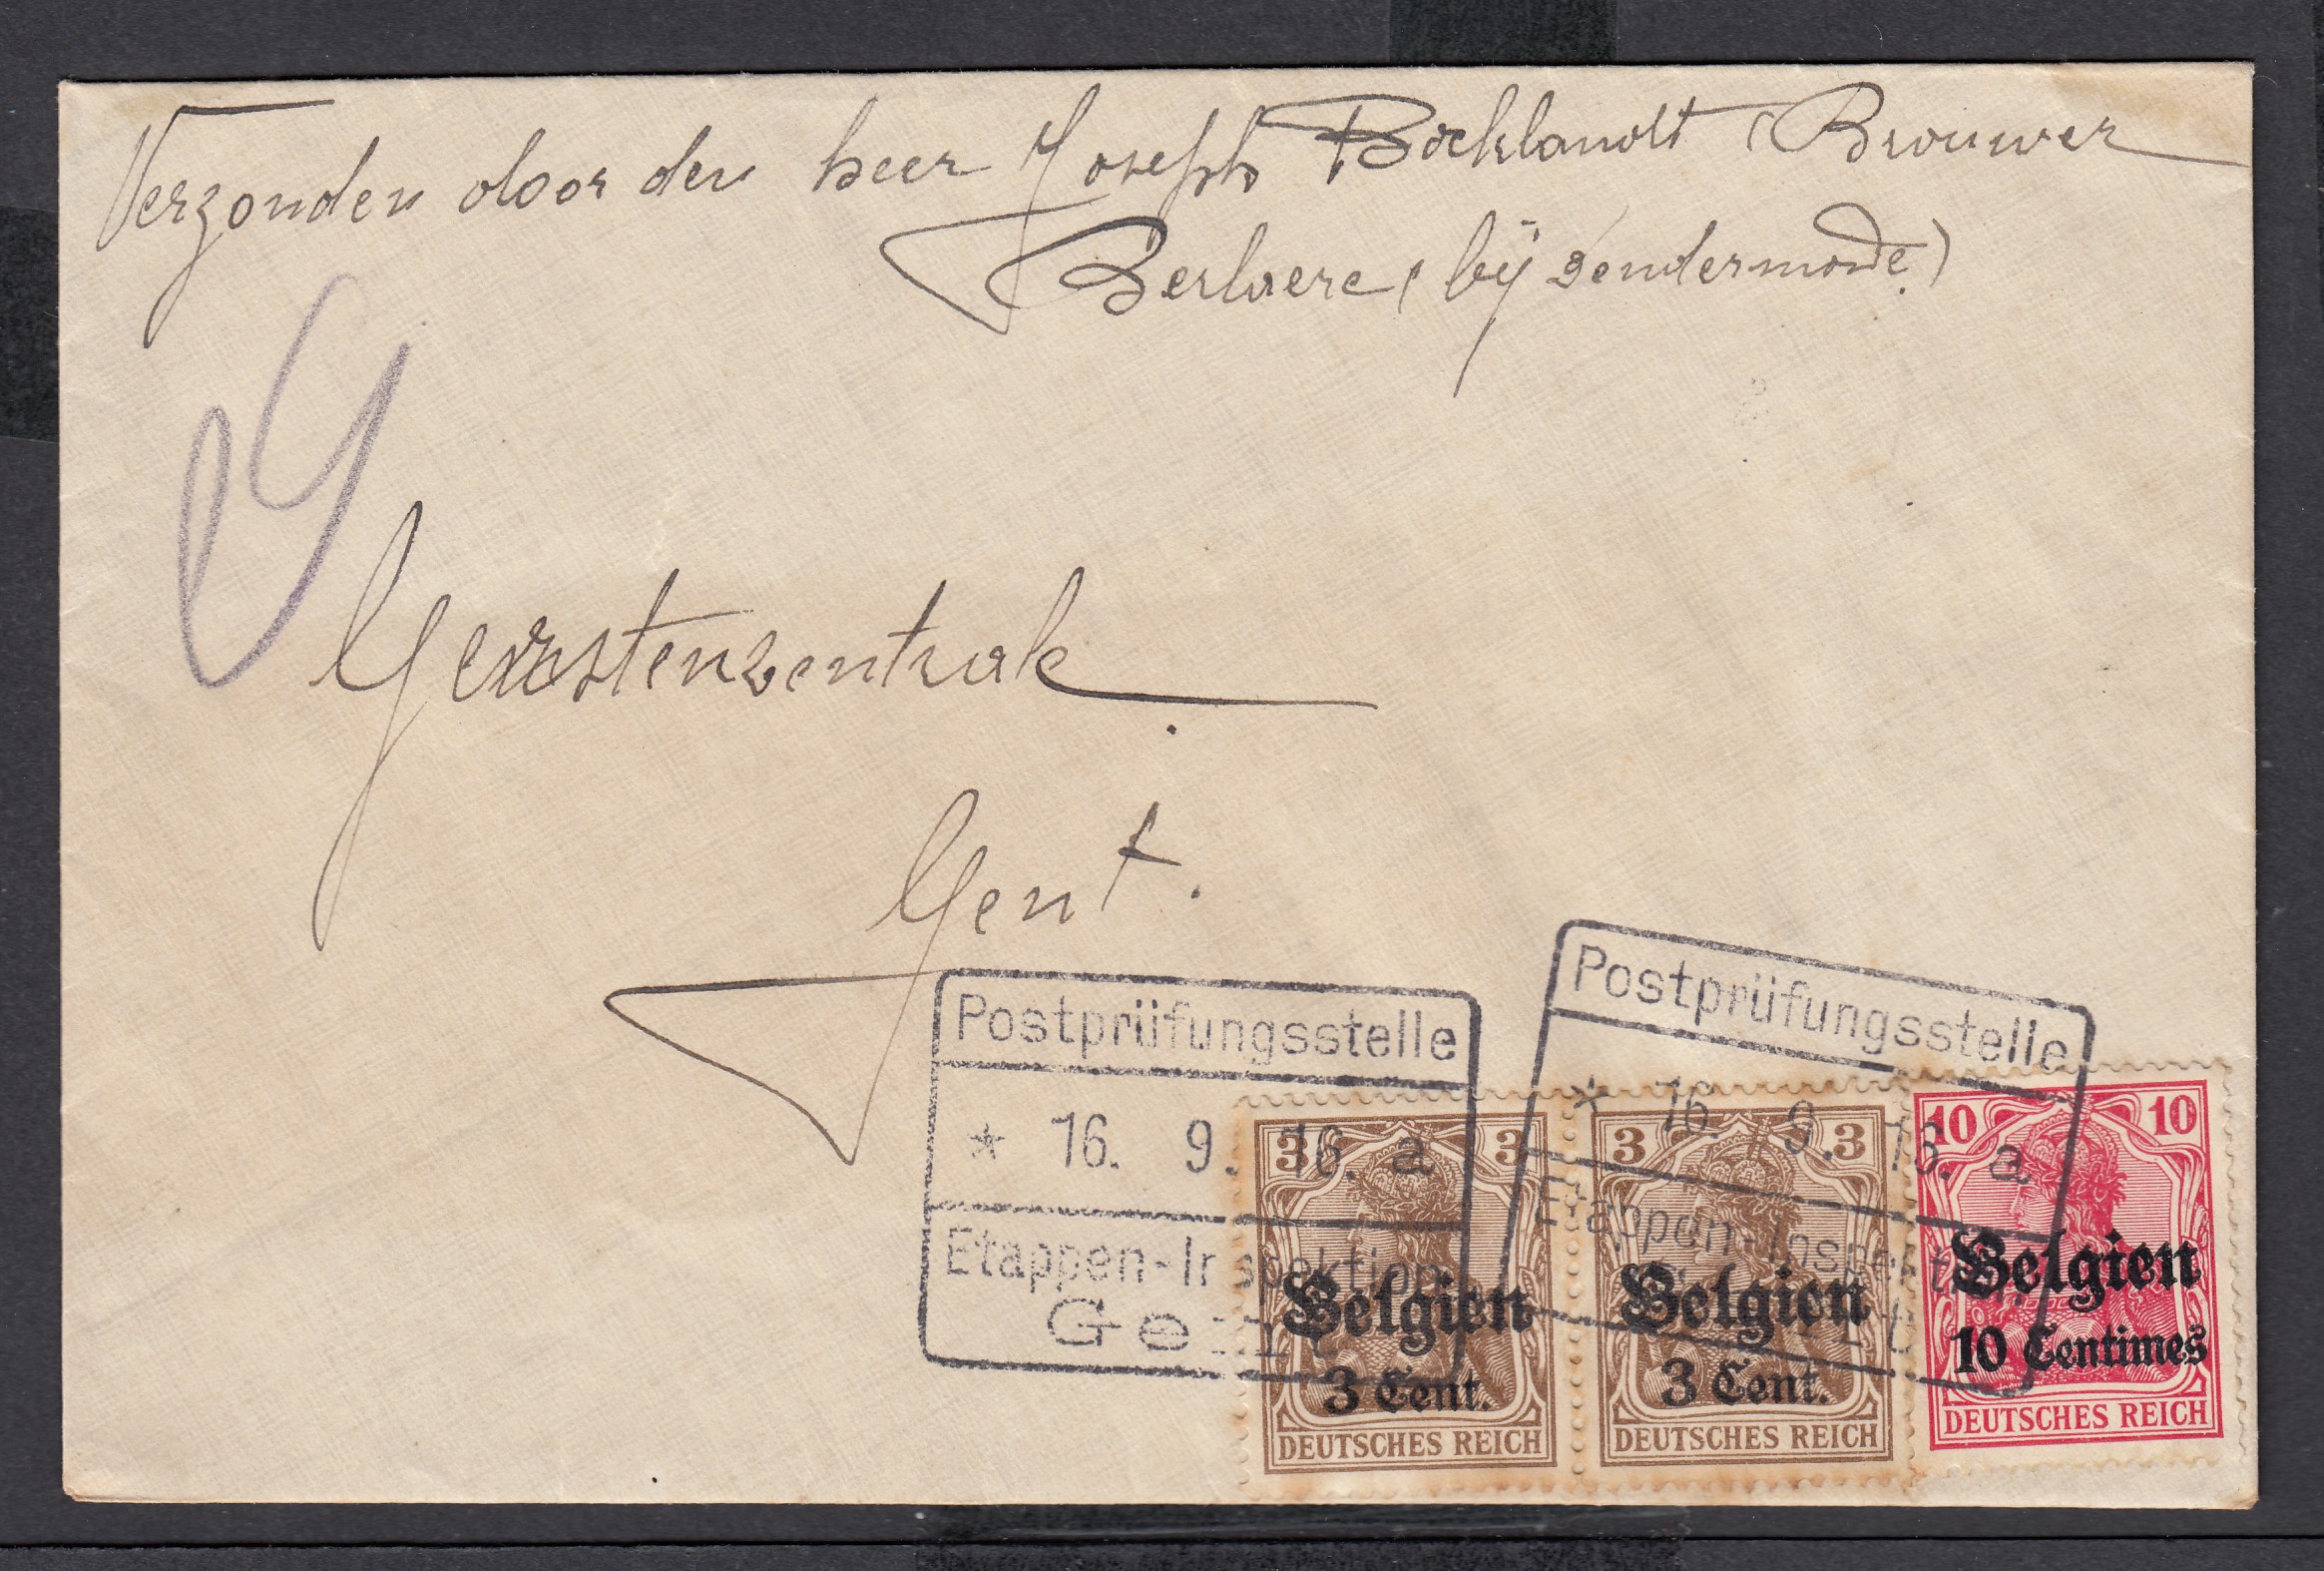 Verzonden door den heer Joseph Bocklandt (Brouwer
Berlaere (bij Dendermonde.)
Gerstenzentrale.
Gent.
Postprüfungsstelle
* 16. 9. 16. a
Etappen-Inspektion
Gent
Postprüfungsstelle
* 16. 9. 16. a
Etappen-Inspektion
3 3
Belgien
3 Cent.
DEUTSCHES REICH
3 3
Belgien
3 Cent.
DEUTSCHES REICH
10 10
Belgien
10 Centimes
DEUTSCHES REICH